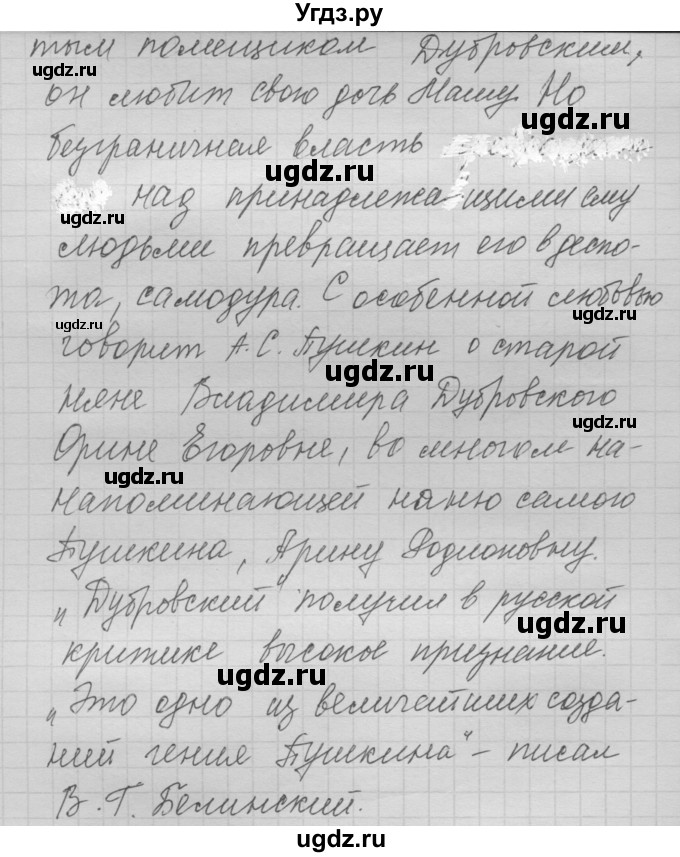 Угдз.ру
тым помещиком Дубровским,
он любит свою дочь Машу. Но
безграничная власть
над принадлежащими ему
людьми превращает его в деспо-
та, самодура. С особенной любовью
говорит А.С. Пушкин о старой
няне Владимира Дубровского
Орине Егоровне, во многом на-
напоминающей няню самого
Пушкина, Арину Родионовну.
„Дубровский" получил в русской
критике высокое признание.
„Это одно из величайших созда-
ний гения Пушкина" – писал
В.Г. Белинский.
ugdz.ru
ugdz.ru
ugdz.ru
ugdz.ru
ugdz.ru
ugdz.ru
ugdz.ru
ugdz.ru
ugdz.ru
ugdz.ru
ugdz.ru
ugdz.ru
ugdz.ru